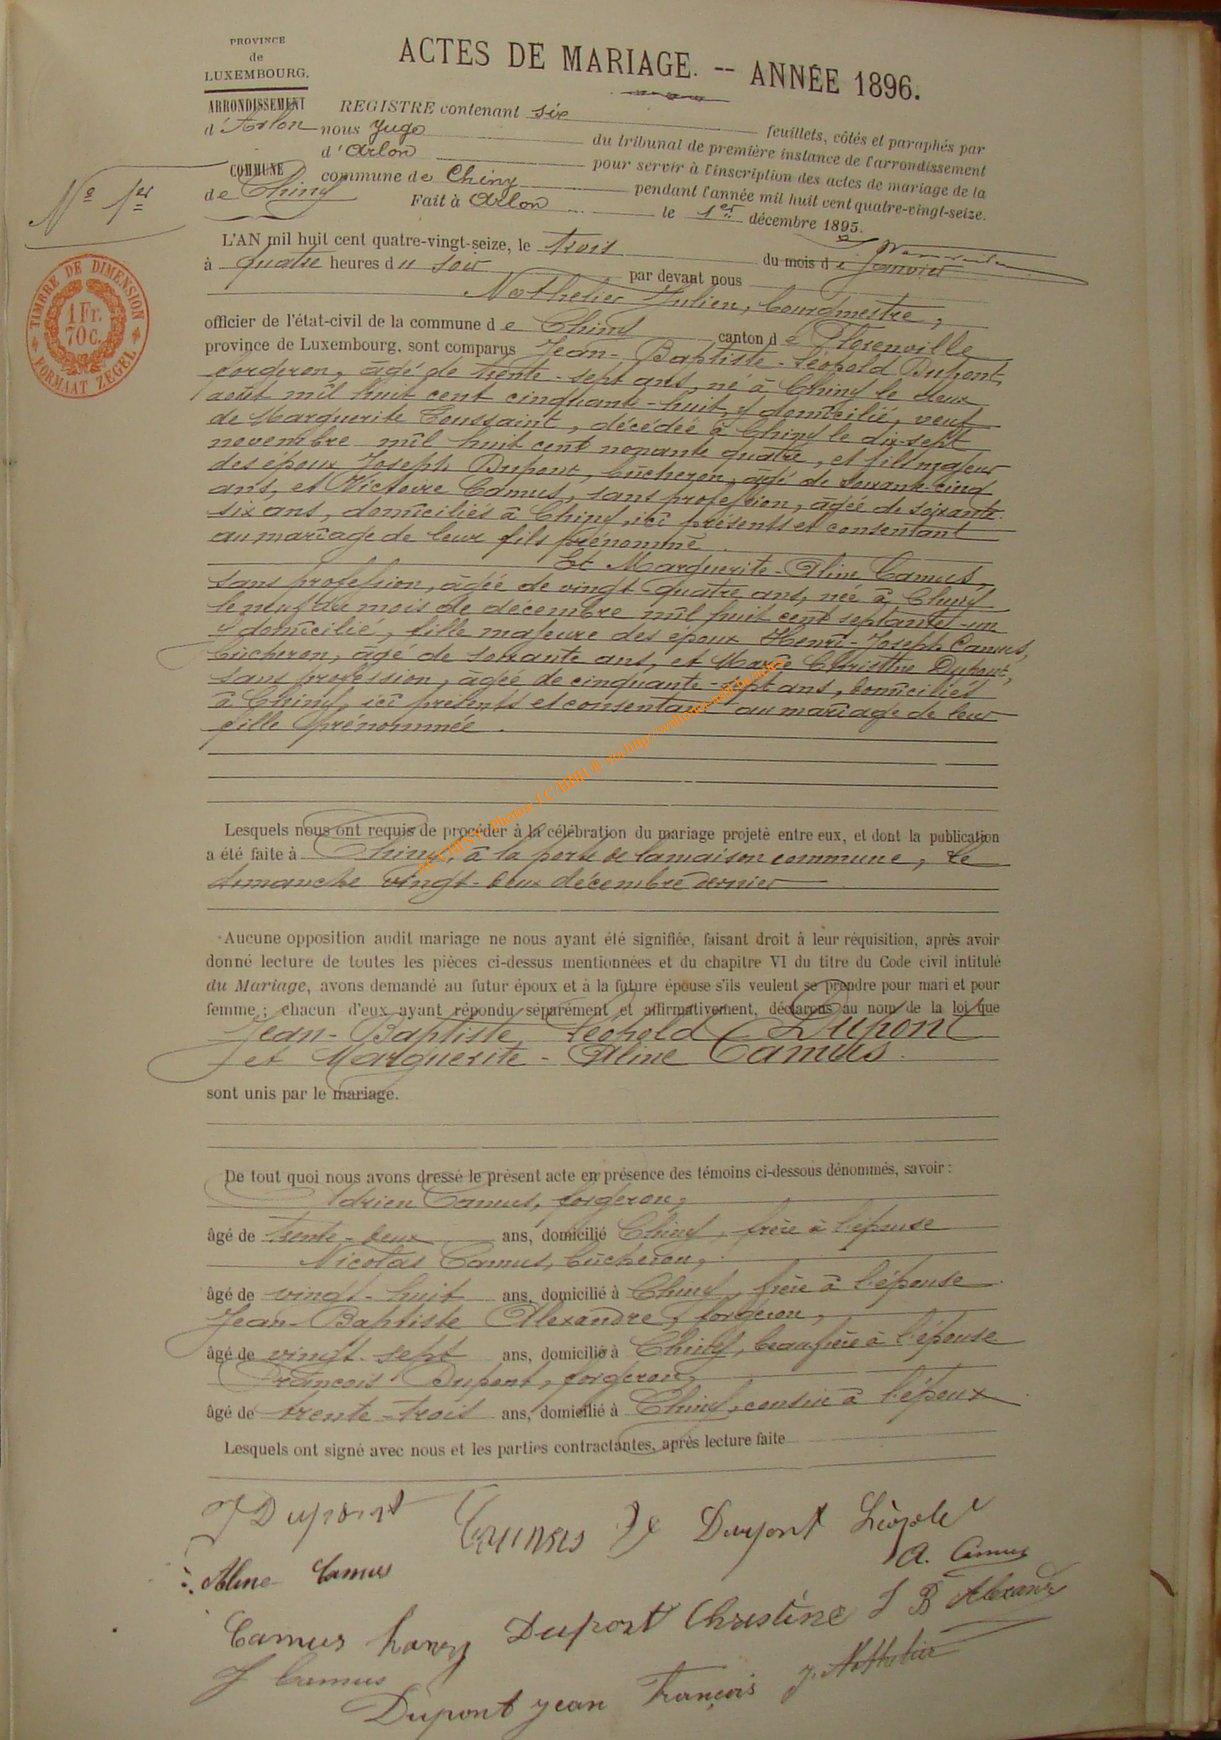 PROVINCE
de
LUXEMBOURG.
ARRONDISSEMENT
d'Arlon
COMMUNE
de Chiny
No 1er
TIMBRE DE DIMENSION
1 Fr.
70 c.
FORMAAT ZEGEL
ACTES DE MARIAGE. -- ANNÉE 1896.
REGISTRE contenant six feuillets, côtés et paraphés par
nous Juge du tribunal de première instance de l'arrondissement
d'Arlon pour servir à l'inscription des actes de mariage de la
commune de Chiny pendant l'année mil huit cent quatre-vingt-seize.
Fait à Arlon le 1er décembre 1895.
L'AN mil huit cent quatre-vingt-seize, le trois du mois de janvier
à quatre heures du soir par devant nous
Nothelier Julien, bourgmestre,
officier de l'état-civil de la commune de Chiny canton de Florenville
province de Luxembourg, sont comparus Jean-Baptiste-Léopold Dupont,
forgeron, âgé de trente-sept ans, né à Chiny le deux
août mil huit cent cinquante-huit, y domicilié, veuf
de Marguerite Toussaint, décédée à Chiny le dix-sept
novembre mil huit cent nonante quatre, et fils majeur
des époux Joseph Dupont, bûcheron, âgé de soixante-cinq
ans, et Victoire Camus, sans profession, âgée de soixante-
six ans, domiciliés à Chiny, ici présents et consentant
au mariage de leur fils prénommé.
Et Marguerite-Aline Camus,
sans profession, âgée de vingt quatre ans, née à Chiny
le neuf du mois de décembre mil huit cent septante-un
y domicilié, fille majeure des époux Henri-Joseph Camus,
bûcheron, âgé de soixante ans, et Marie Christine Dupont,
sans profession, âgée de cinquante-sept ans, domiciliés
à Chiny, ici présents et consentant au mariage de leur
fille prénommée.
Lesquels nous ont requis de procéder à la célébration du mariage projeté entre eux, et dont la publication
a été faite à Chiny, à la porte de la maison commune, le
dimanche vingt-deux décembre dernier
Aucune opposition audit mariage ne nous ayant été signifiée, faisant droit à leur réquisition, après avoir
donné lecture de toutes les pièces ci-dessus mentionnées et du chapitre VI du titre du Code civil intitulé
du Mariage, avons demandé au futur époux et à la future épouse s'ils veulent se prendre pour mari et pour
femme ; chacun d'eux ayant répondu séparément et affirmativement, déclarons au nom de la loi que
Jean-Baptiste Léopold Dupont
et Marguerite-Aline Camus.
sont unis par le mariage.
De tout quoi nous avons dressé le présent acte en présence des témoins ci-dessous dénommés, savoir :
Adrien Camus, forgeron,
âgé de trente-deux ans, domicilié Chiny, frère à l'épouse
Nicolas Camus, bûcheron,
âgé de vingt-huit ans, domicilié à Chiny, frère à l'épouse
Jean-Baptiste Alexandre, forgeron,
âgé de vingt-sept ans, domicilié à Chiny, beau frère à l'épouse
François Dupont, forgeron,
âgé de trente-trois ans, domicilié à Chiny, cousin à l'époux
Lesquels ont signé avec nous et les parties contractantes, après lecture faite
J Dupont Camus Dupont Léopold
Aline Camus A. Camus
Camus hanry Dupont Christine J B Alexandre
J Camus
Dupont jean François J. Nothelier